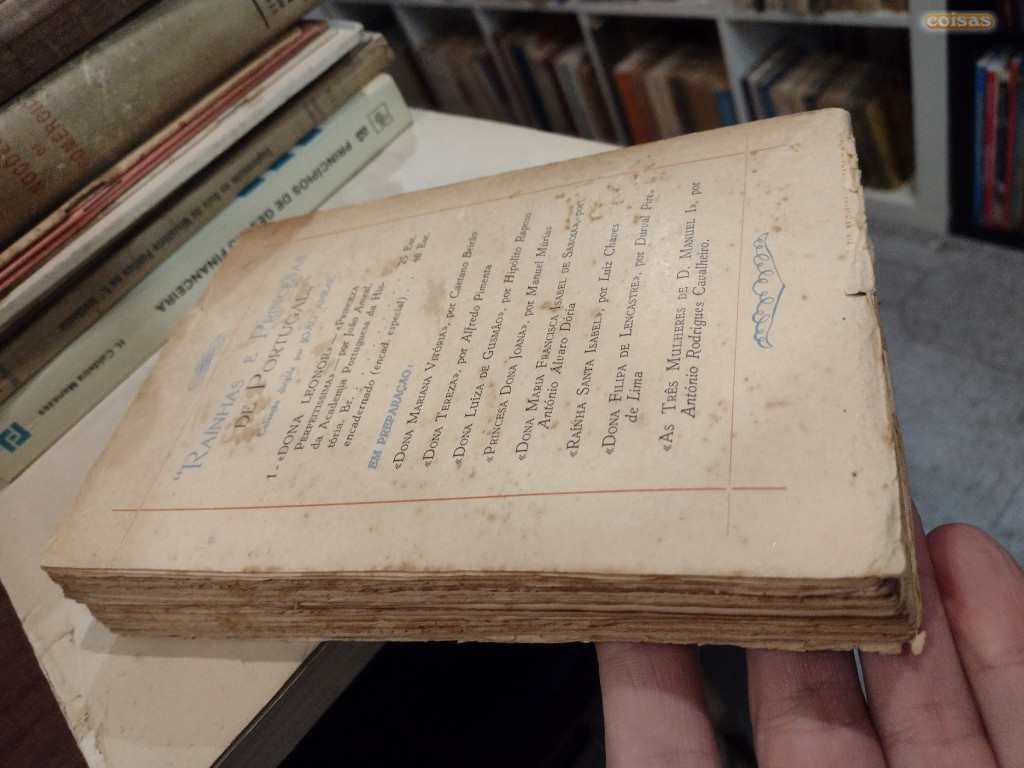 "RAINHAS E PRINCESAS
DE PORTUGAL"
1 - «DONA LEONOR. - «PRINCESA
PERFEITISSIMA» — por João Ameal,
da Academia Portuguesa da His-
tória, Br. . . . 25 Esc
encadernado (encad. especial) . . .
EM PREPARAÇÃO:
«DONA MARIANA VITÓRIA», por Caetano Beirão
«DONA TEREZA», por Alfredo Pimenta
«DONA LUÍZA DE GUSMÃO», por Hipólito Raposo
«PRINCESA DONA JOANA», por Manuel Múrias
«DONA MARIA FRANCISCA ISABEL DE SABOIA» por
António Álvaro Dória
«RAÍNHA SANTA ISABEL», por Luiz Chaves
«DONA FILIPA DE LENCASTRE», por Durval Pires
de Lima
«AS TRÊS MULHERES DE D. MANUEL I», por
António Rodrigues Cavalheiro.
PRINCÍPIOS DE GESTÃO FINANCEIRA
H. Caldeira Menezes
NOÇÕES
DE
COMERCIO
coisas